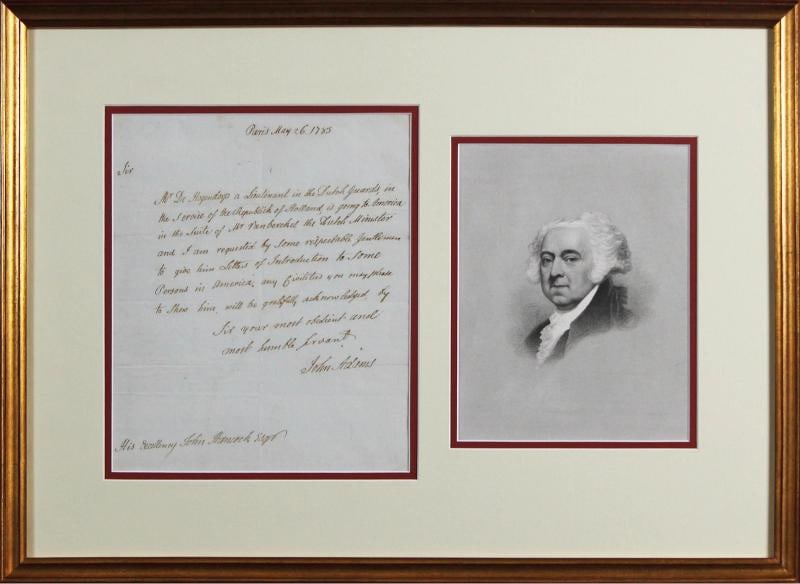 Paris May 26. 1783
Sir
Mr. De Hogendorp a Lieutenant in the Dutch Guards, in
the Service of the Republick of Holland, is going to America
in the Suite of Mr Vanberckel the Dutch Minister
and I am requested by some respectable Gentlemen
to give him Letters of Introduction to some
Persons in America; any Civilities you may please
to Show him, will be gratefully acknowledged, by
Sir your most obedient and
most humble Servant.
John Adams
His Excellency John Hancock Esqr